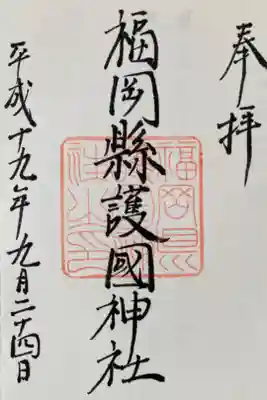 奉拝
福岡縣護國神社
平成十九年九月二十四日